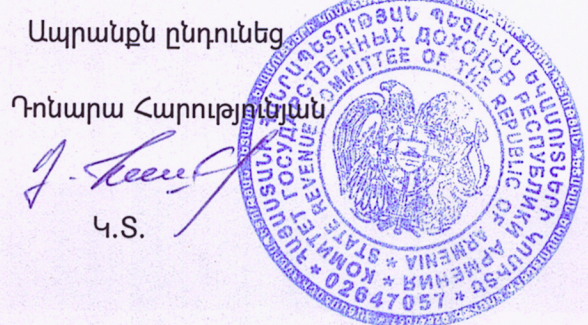 Ապրանքն ընդունեց
Դոնարա Հարությունյան
Կ.Տ.
ՀԱՅԱՍՏԱՆԻ ՀԱՆՐԱՊԵՏՈՒԹՅԱՆ ՊԵՏԱԿԱՆ ԵԿԱՄՈՒՏՆԵՐԻ ԿՈՄԻՏԵ
* 02647057 *
КОМИТЕТ ГОСУДАРСТВЕННЫХ ДОХОДОВ РЕСПУБЛИКИ АРМЕНИЯ *
STATE REVENUE COMMITTEE OF THE REPUBLIC OF ARMENIA *